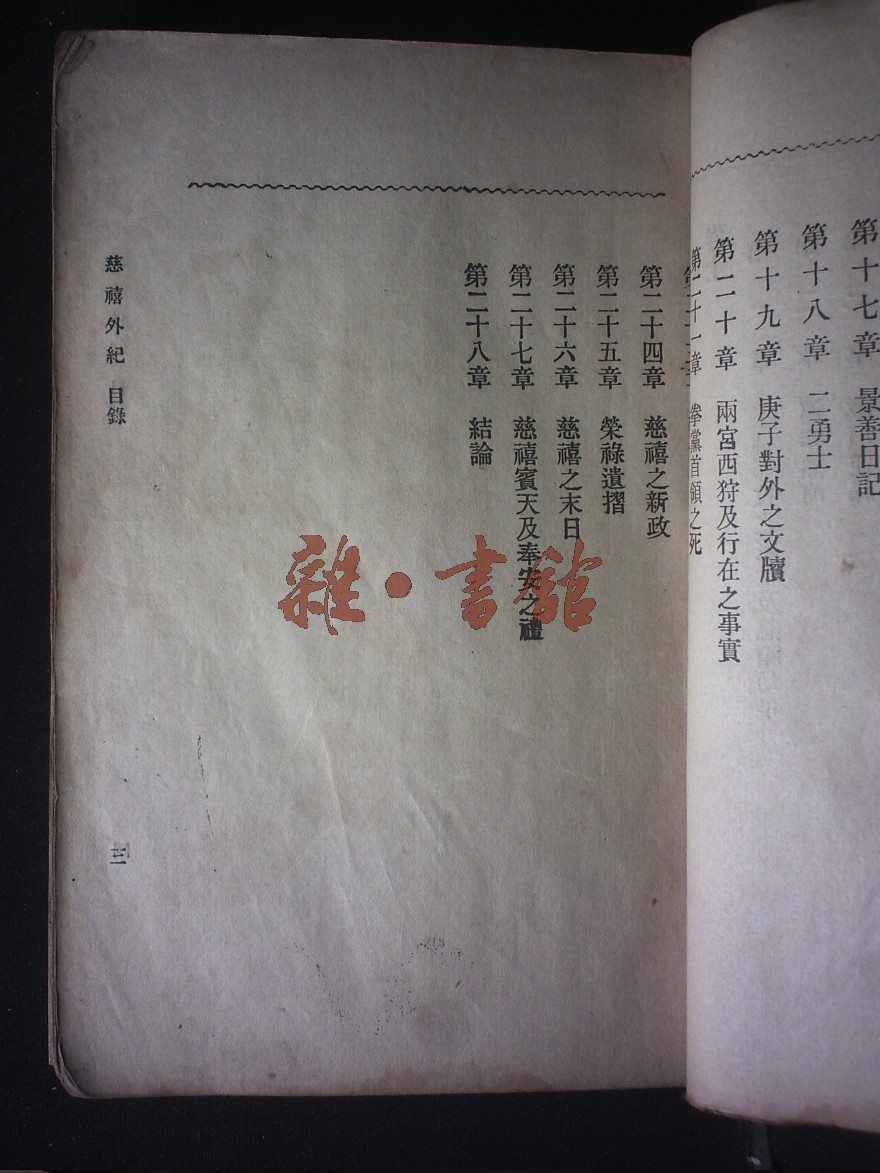 第十七章　景善日記
第十八章　二勇士
第十九章　庚子對外之文牘
第二十章　兩宮西狩及行在之事實
第二十一章　拳黨首領之死
第二十四章　慈禧之新政
第二十五章　榮祿遺摺
第二十六章　慈禧之末日
第二十七章　慈禧賓天及奉安之禮
第二十八章　結論
慈禧外紀　目錄
三
雜・書館